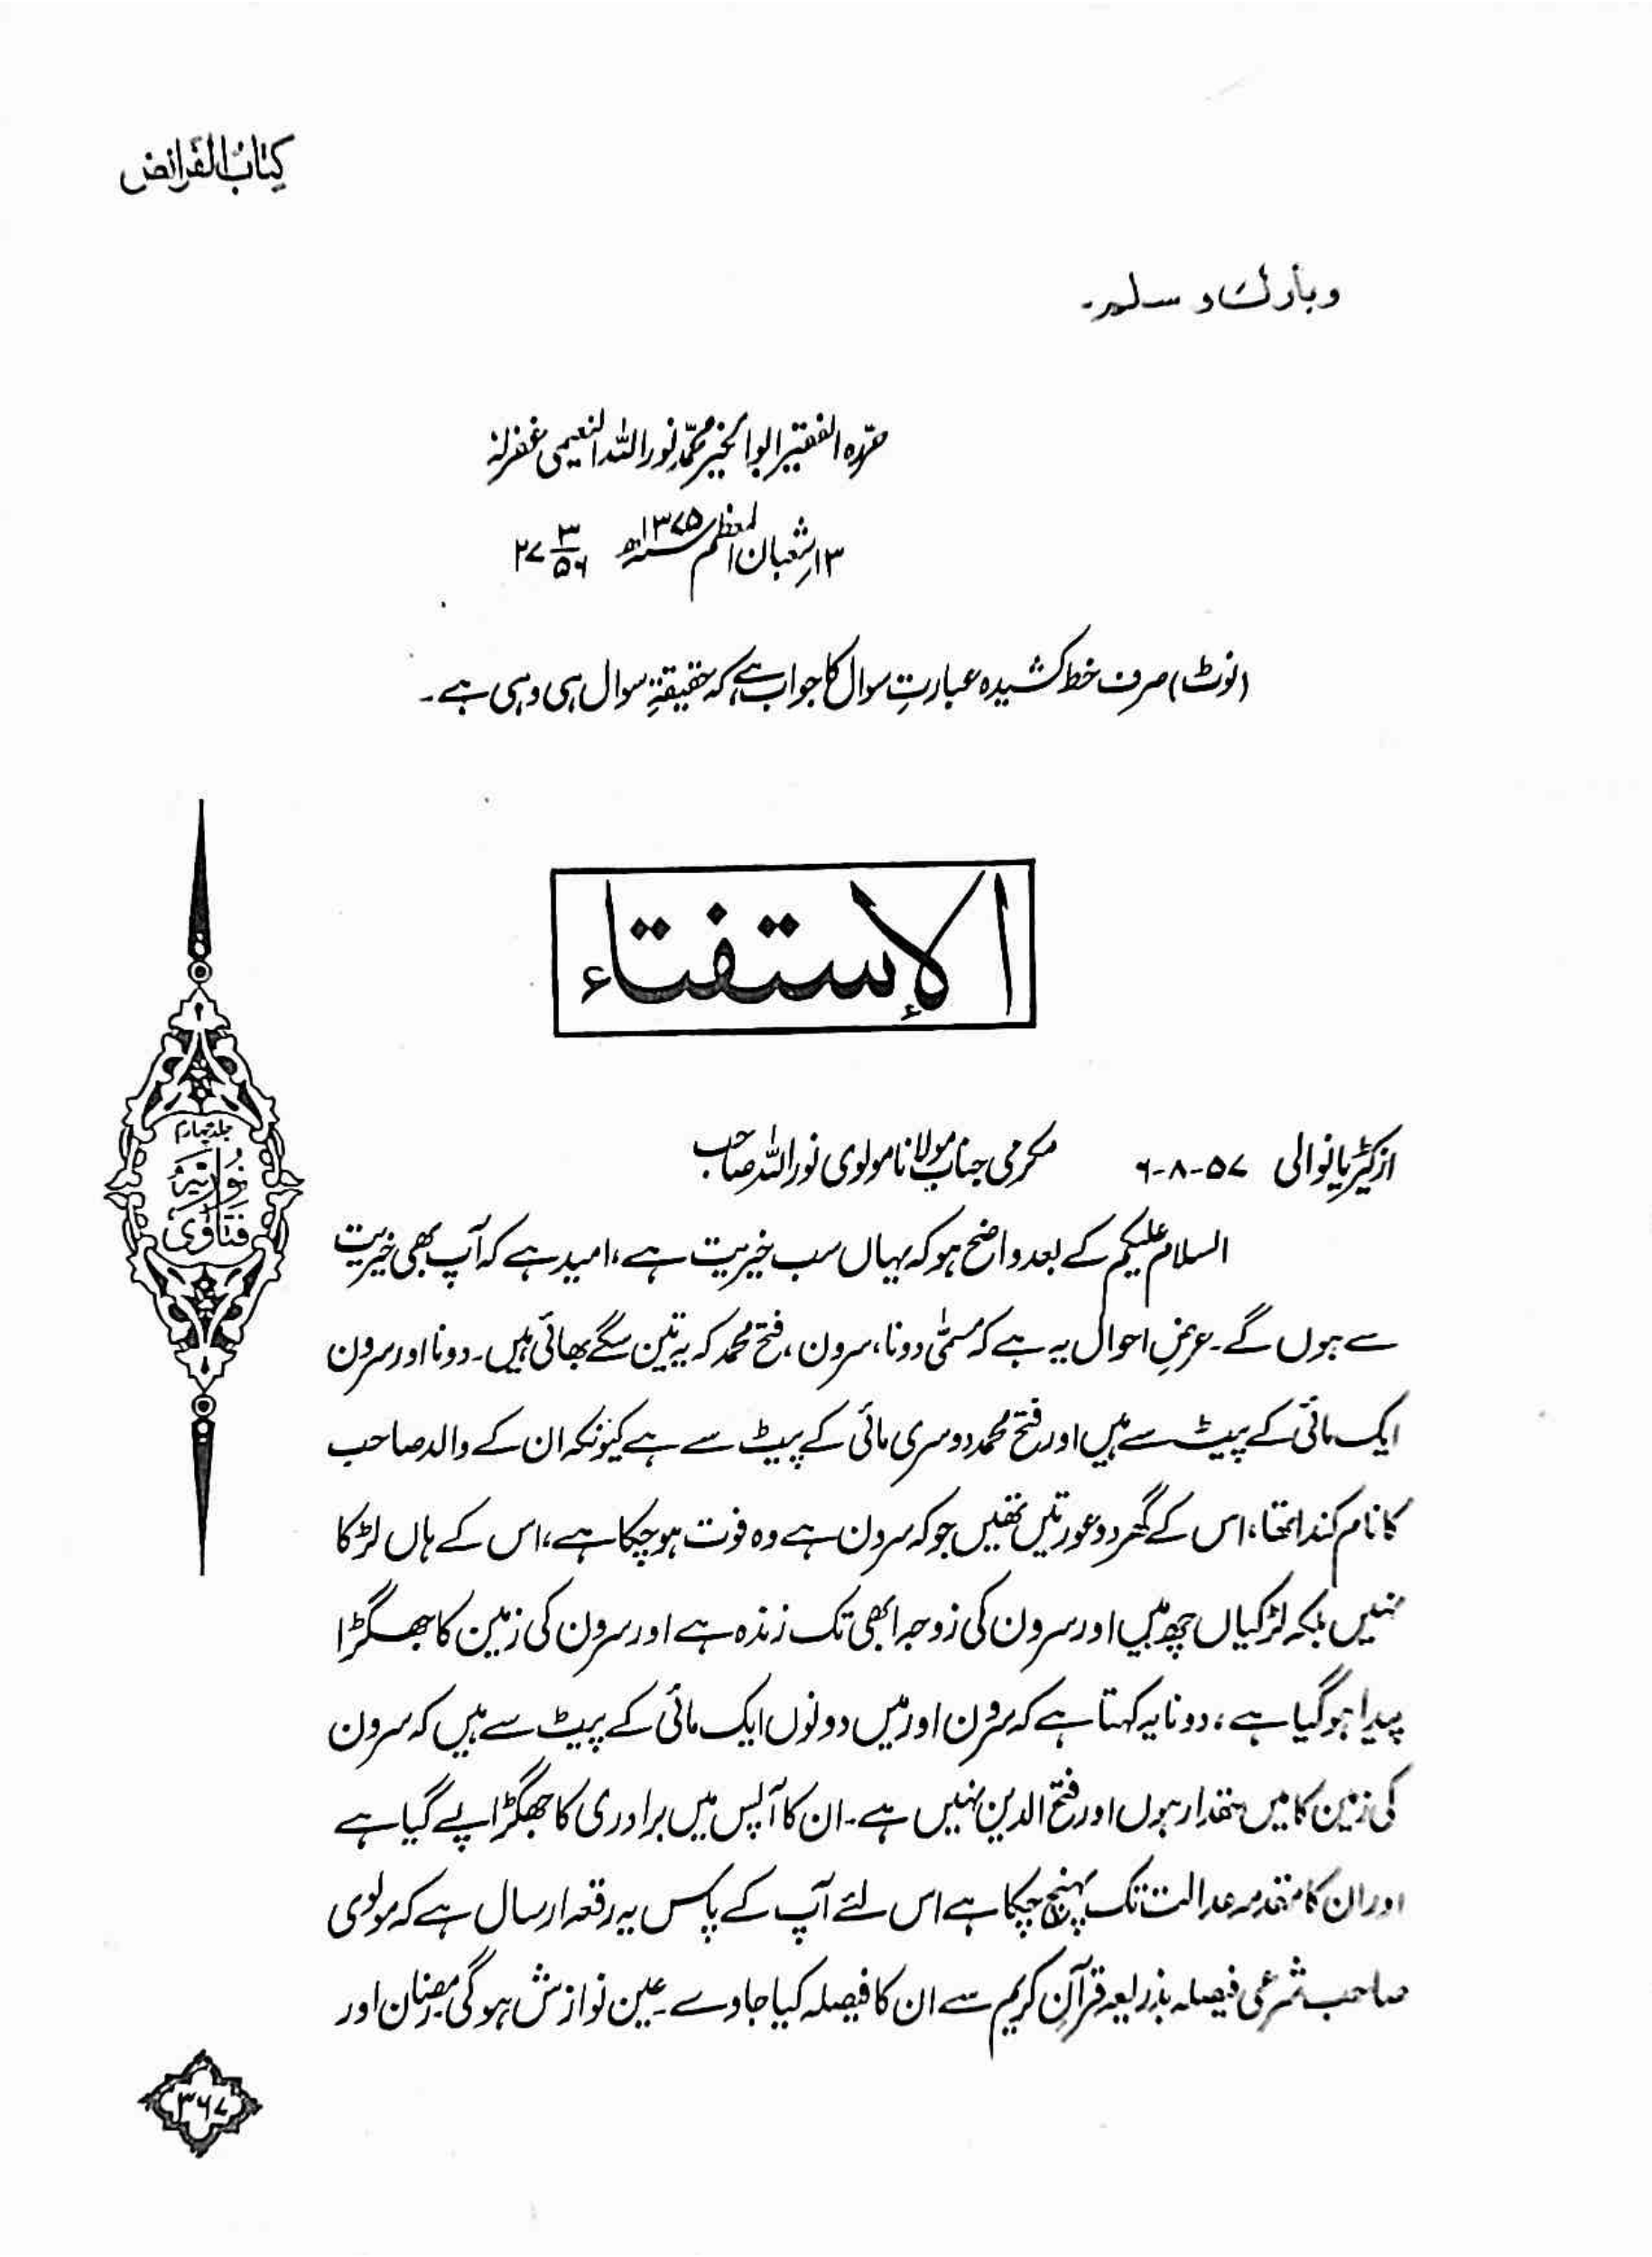 کتاب الفرائض
وبارك وسلم۔
حررہ الفقیر ابوالخیر محمد نور اللہ النعیمی غفرلہ
۱۳ شعبان المعظم ۱۳۷۵ھ ۲۷/۳/۵۶
(نوٹ) صرف خط کشیدہ عبارتِ سوال کا جواب ہے کہ حقیقۃً سوال ہی وہی ہے۔
الإستفتاء
از کیٹریانوالی ۵۷-۸-۶ مکرمی جناب مولانا مولوی نور اللہ صاحب
السلام علیکم کے بعد واضح ہو کہ یہاں سب خیریت ہے، امید ہے کہ آپ بھی خیریت
سے ہوں گے۔ عرضِ احوال یہ ہے کہ مسمّٰی دونا، سرون، فتح محمد کہ یہ تین سگے بھائی ہیں۔ دونا اور سرون
ایک مائی کے پیٹ سے ہیں اور فتح محمد دوسری مائی کے پیٹ سے ہے کیونکہ ان کے والد صاحب
کا نام کندا تھا، اس کے گھر دو عورتیں تھیں جو کہ سرون ہے وہ فوت ہو چکا ہے، اس کے ہاں لڑکا
نہیں بلکہ لڑکیاں چھ ہیں اور سرون کی زوجہ ابھی تک زندہ ہے اور سرون کی زمین کا جھگڑا
پیدا ہو گیا ہے، دونا یہ کہتا ہے کہ سرون اور میں دونوں ایک مائی کے پیٹ سے ہیں کہ سرون
کی زمین کا میں حقدار ہوں اور فتح الدین نہیں ہے۔ ان کا آپس میں برادری کا جھگڑا پے گیا ہے
اور ان کا مقدمہ عدالت تک پہنچ چکا ہے اس لئے آپ کے پاس یہ رقعہ ارسال ہے کہ مولوی
صاحب شرعی فیصلہ بذریعہ قرآن کریم سے ان کا فیصلہ کیا جاوے۔ عین نوازش ہو گی رمضان اور
جلد چہارم
نوریہ
فتاوٰی
۳۶۷